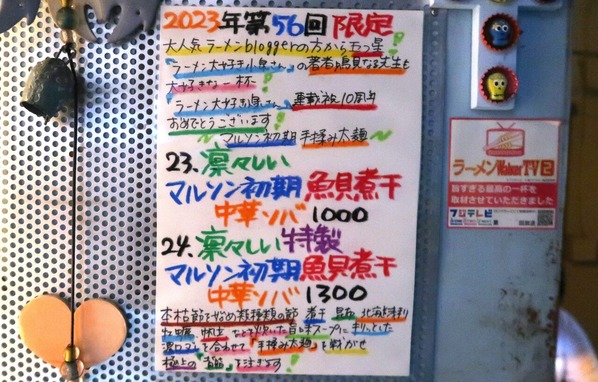 2023年第56回 限定
大人気ラーメンbloggerの方から五つ星!
「ラーメン大好き小泉さん」の著者 鳴見なる先生も
大好きな一杯!
「ラーメン大好き小泉さん」連載祝10周年
おめでとうございます!
〜マルソン初期 手揉み太麺〜
23.凛々しい
マルソン初期 魚貝煮干
中華ソバ 1000
24.凛々しい 特製
マルソン初期 魚貝煮干
中華ソバ 1300
本枯節で始め数種類の節 煮干 昆布 北海道
帆立
を合わせて「手揉み太麺」を
極上の を注ぎます!
ラーメンWalkerTV2
旨すぎる最高の一杯を
取材させていただきました
フジテレビ